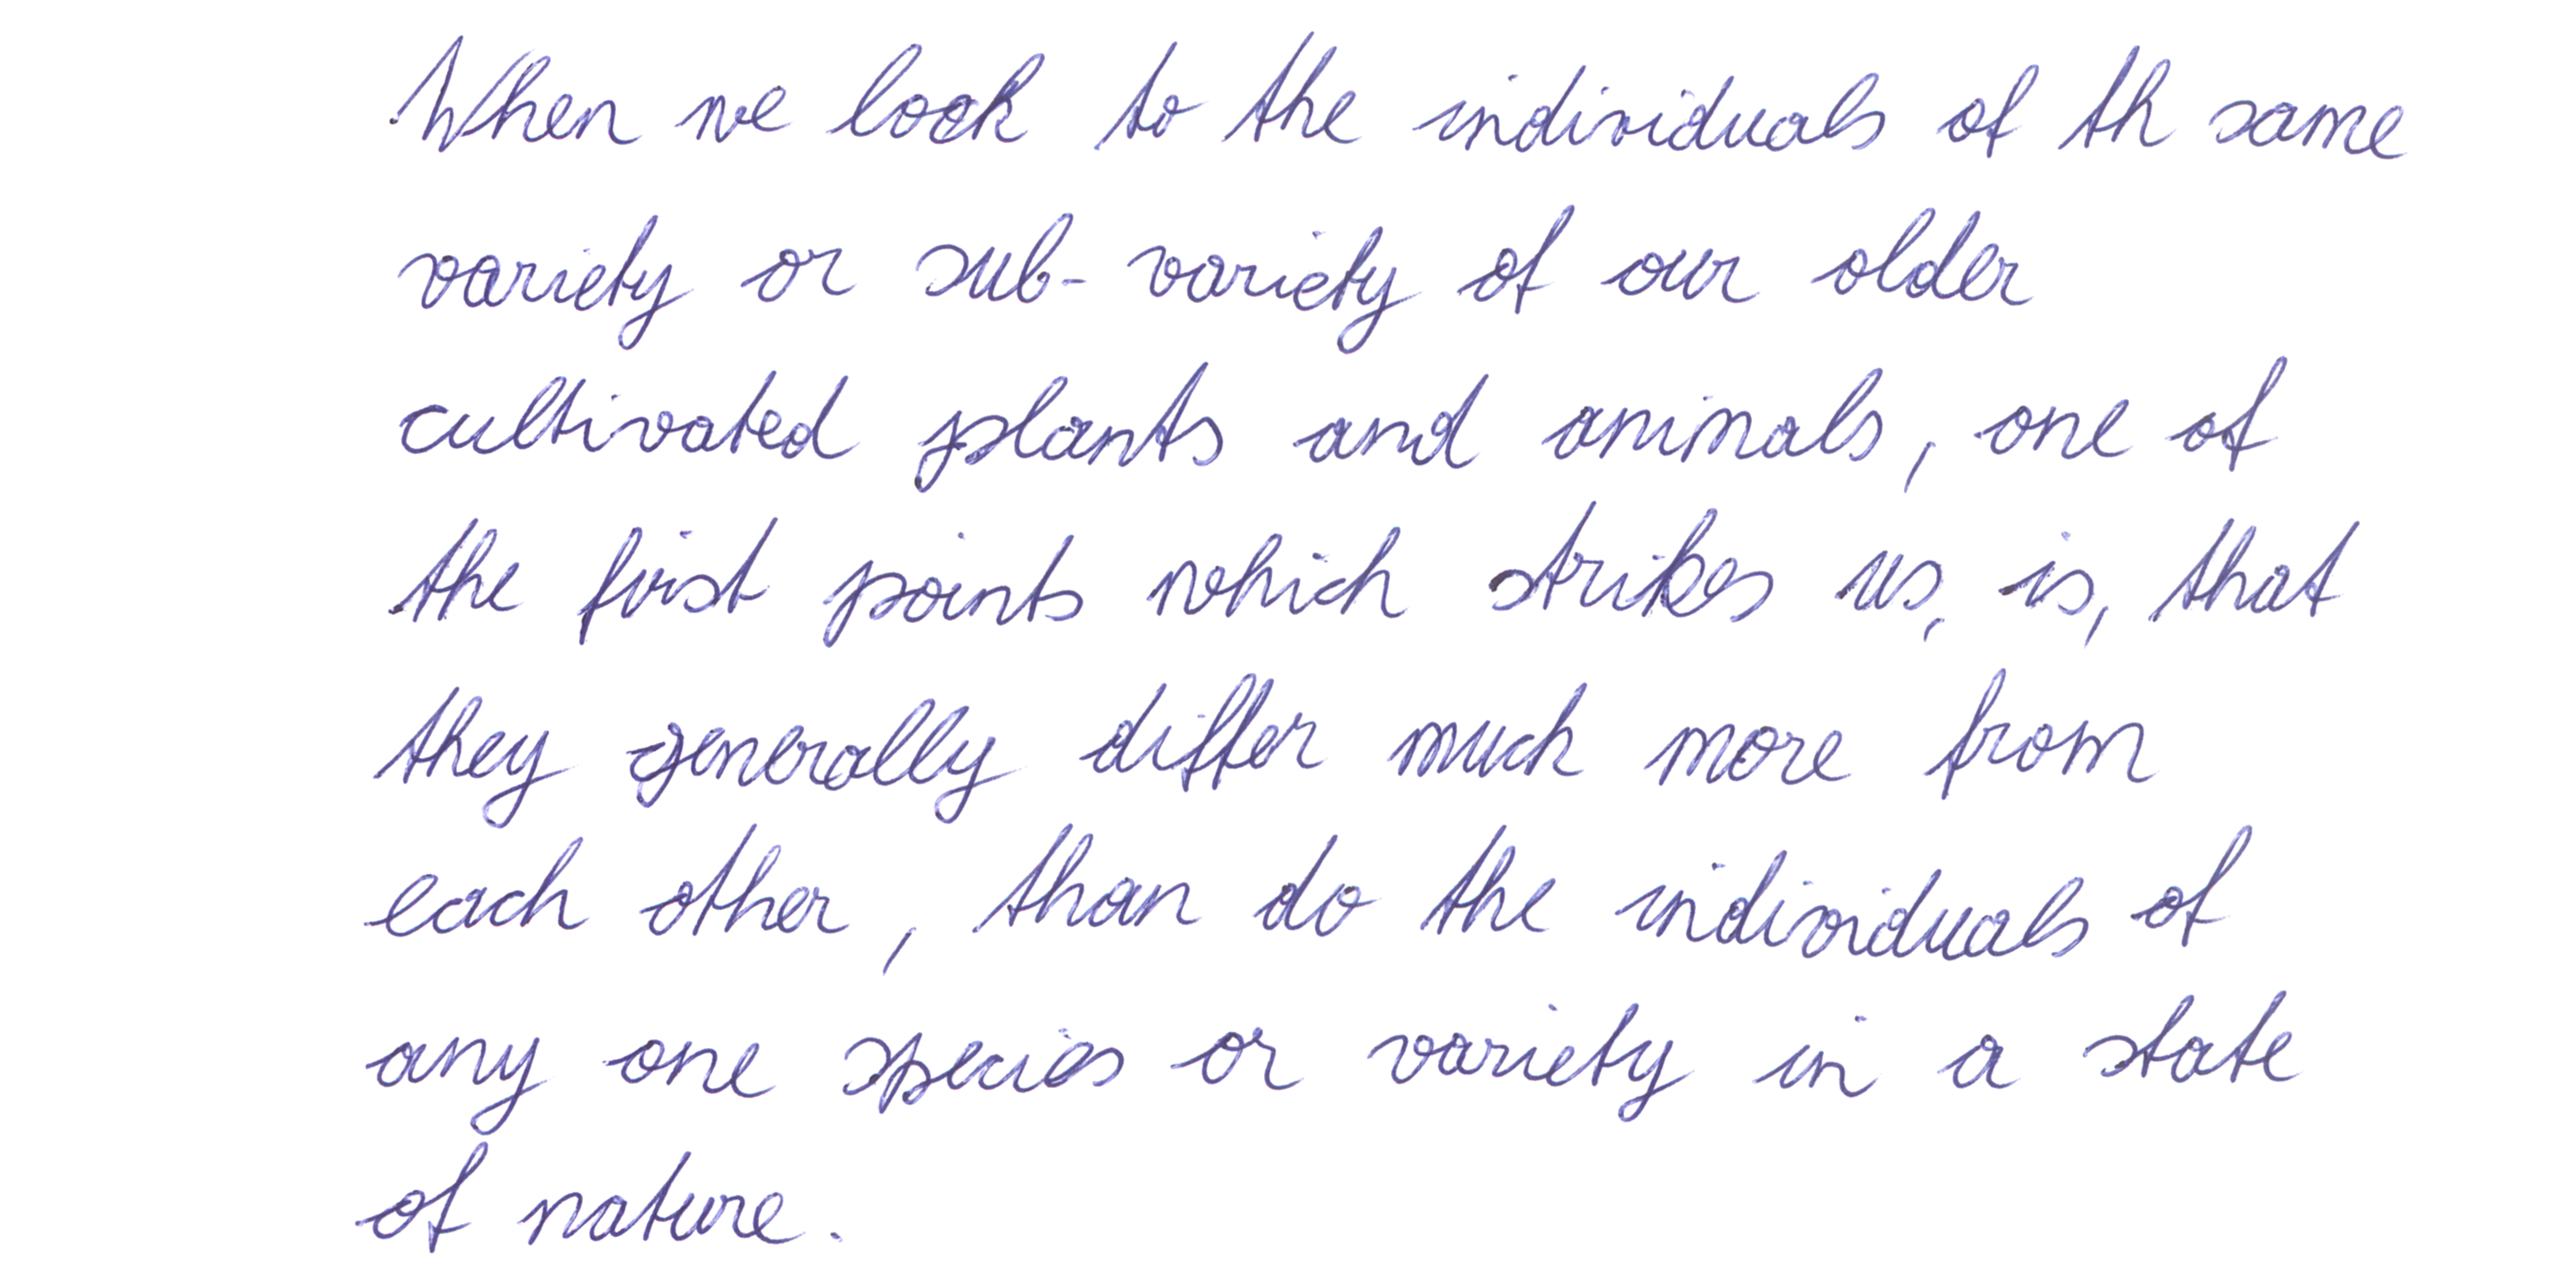 When we look to the individuals of th same
variety or sub-variety of our older
cultivated plants and animals, one of
the first points which strikes us, is, that
they generally differ much more from
each other, than do the individuals of
any one species or variety in a state
of nature.